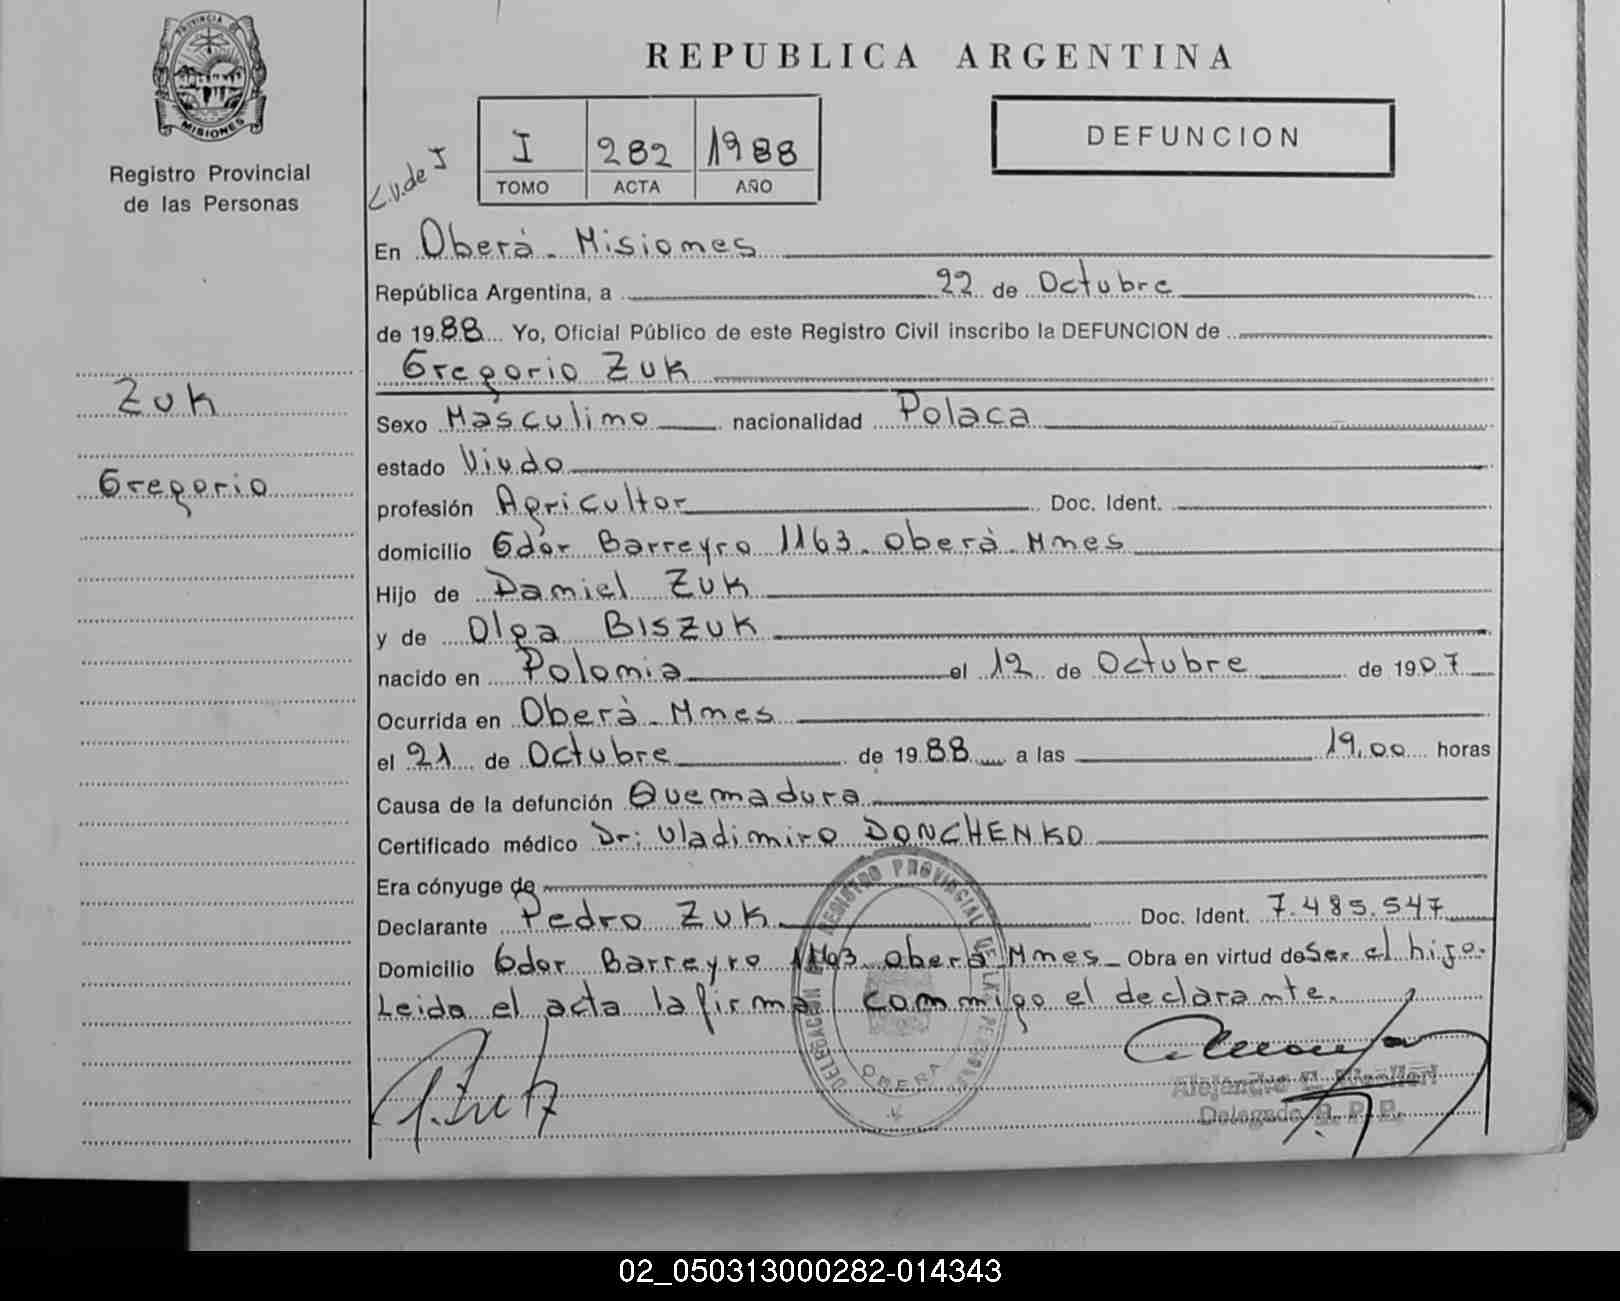 PROVINCIA DE
MISIONES
Registro Provincial
de las Personas
Zuk
Gregorio
REPUBLICA ARGENTINA
C.V.de I
I 282 1988
TOMO ACTA AÑO
DEFUNCION
En Oberá - Misiones
República Argentina, a 22 de Octubre
de 1988 Yo, Oficial Público de este Registro Civil inscribo la DEFUNCION de
Gregorio Zuk
Sexo Masculino nacionalidad Polaca
estado Viudo
profesión Agricultor Doc. Ident.
domicilio Gdor Barreyro 1163 - Oberá - Mnes
Hijo de Daniel Zuk
y de Olga BISZUK
nacido en Polonia el 12 de Octubre de 1907
Ocurrida en Oberá - Mnes
el 21 de Octubre de 1988 a las 19,00 horas
Causa de la defunción Quemadura
Certificado médico Dr: Vladimiro DONCHENKO
Era cónyuge de
Declarante Pedro Zuk Doc. Ident. 7.485.547
Domicilio Gdor Barreyro 1163 - Oberá - Mnes - Obra en virtud de Ser el hijo.
Leida el acta la firma conmigo el declarante.
DELEGACION REGISTRO PROVINCIAL DE LAS PERSONAS
OBERA
P. Zuk
Alejandro
Delegado R. P. P.
02_050313000282-014343